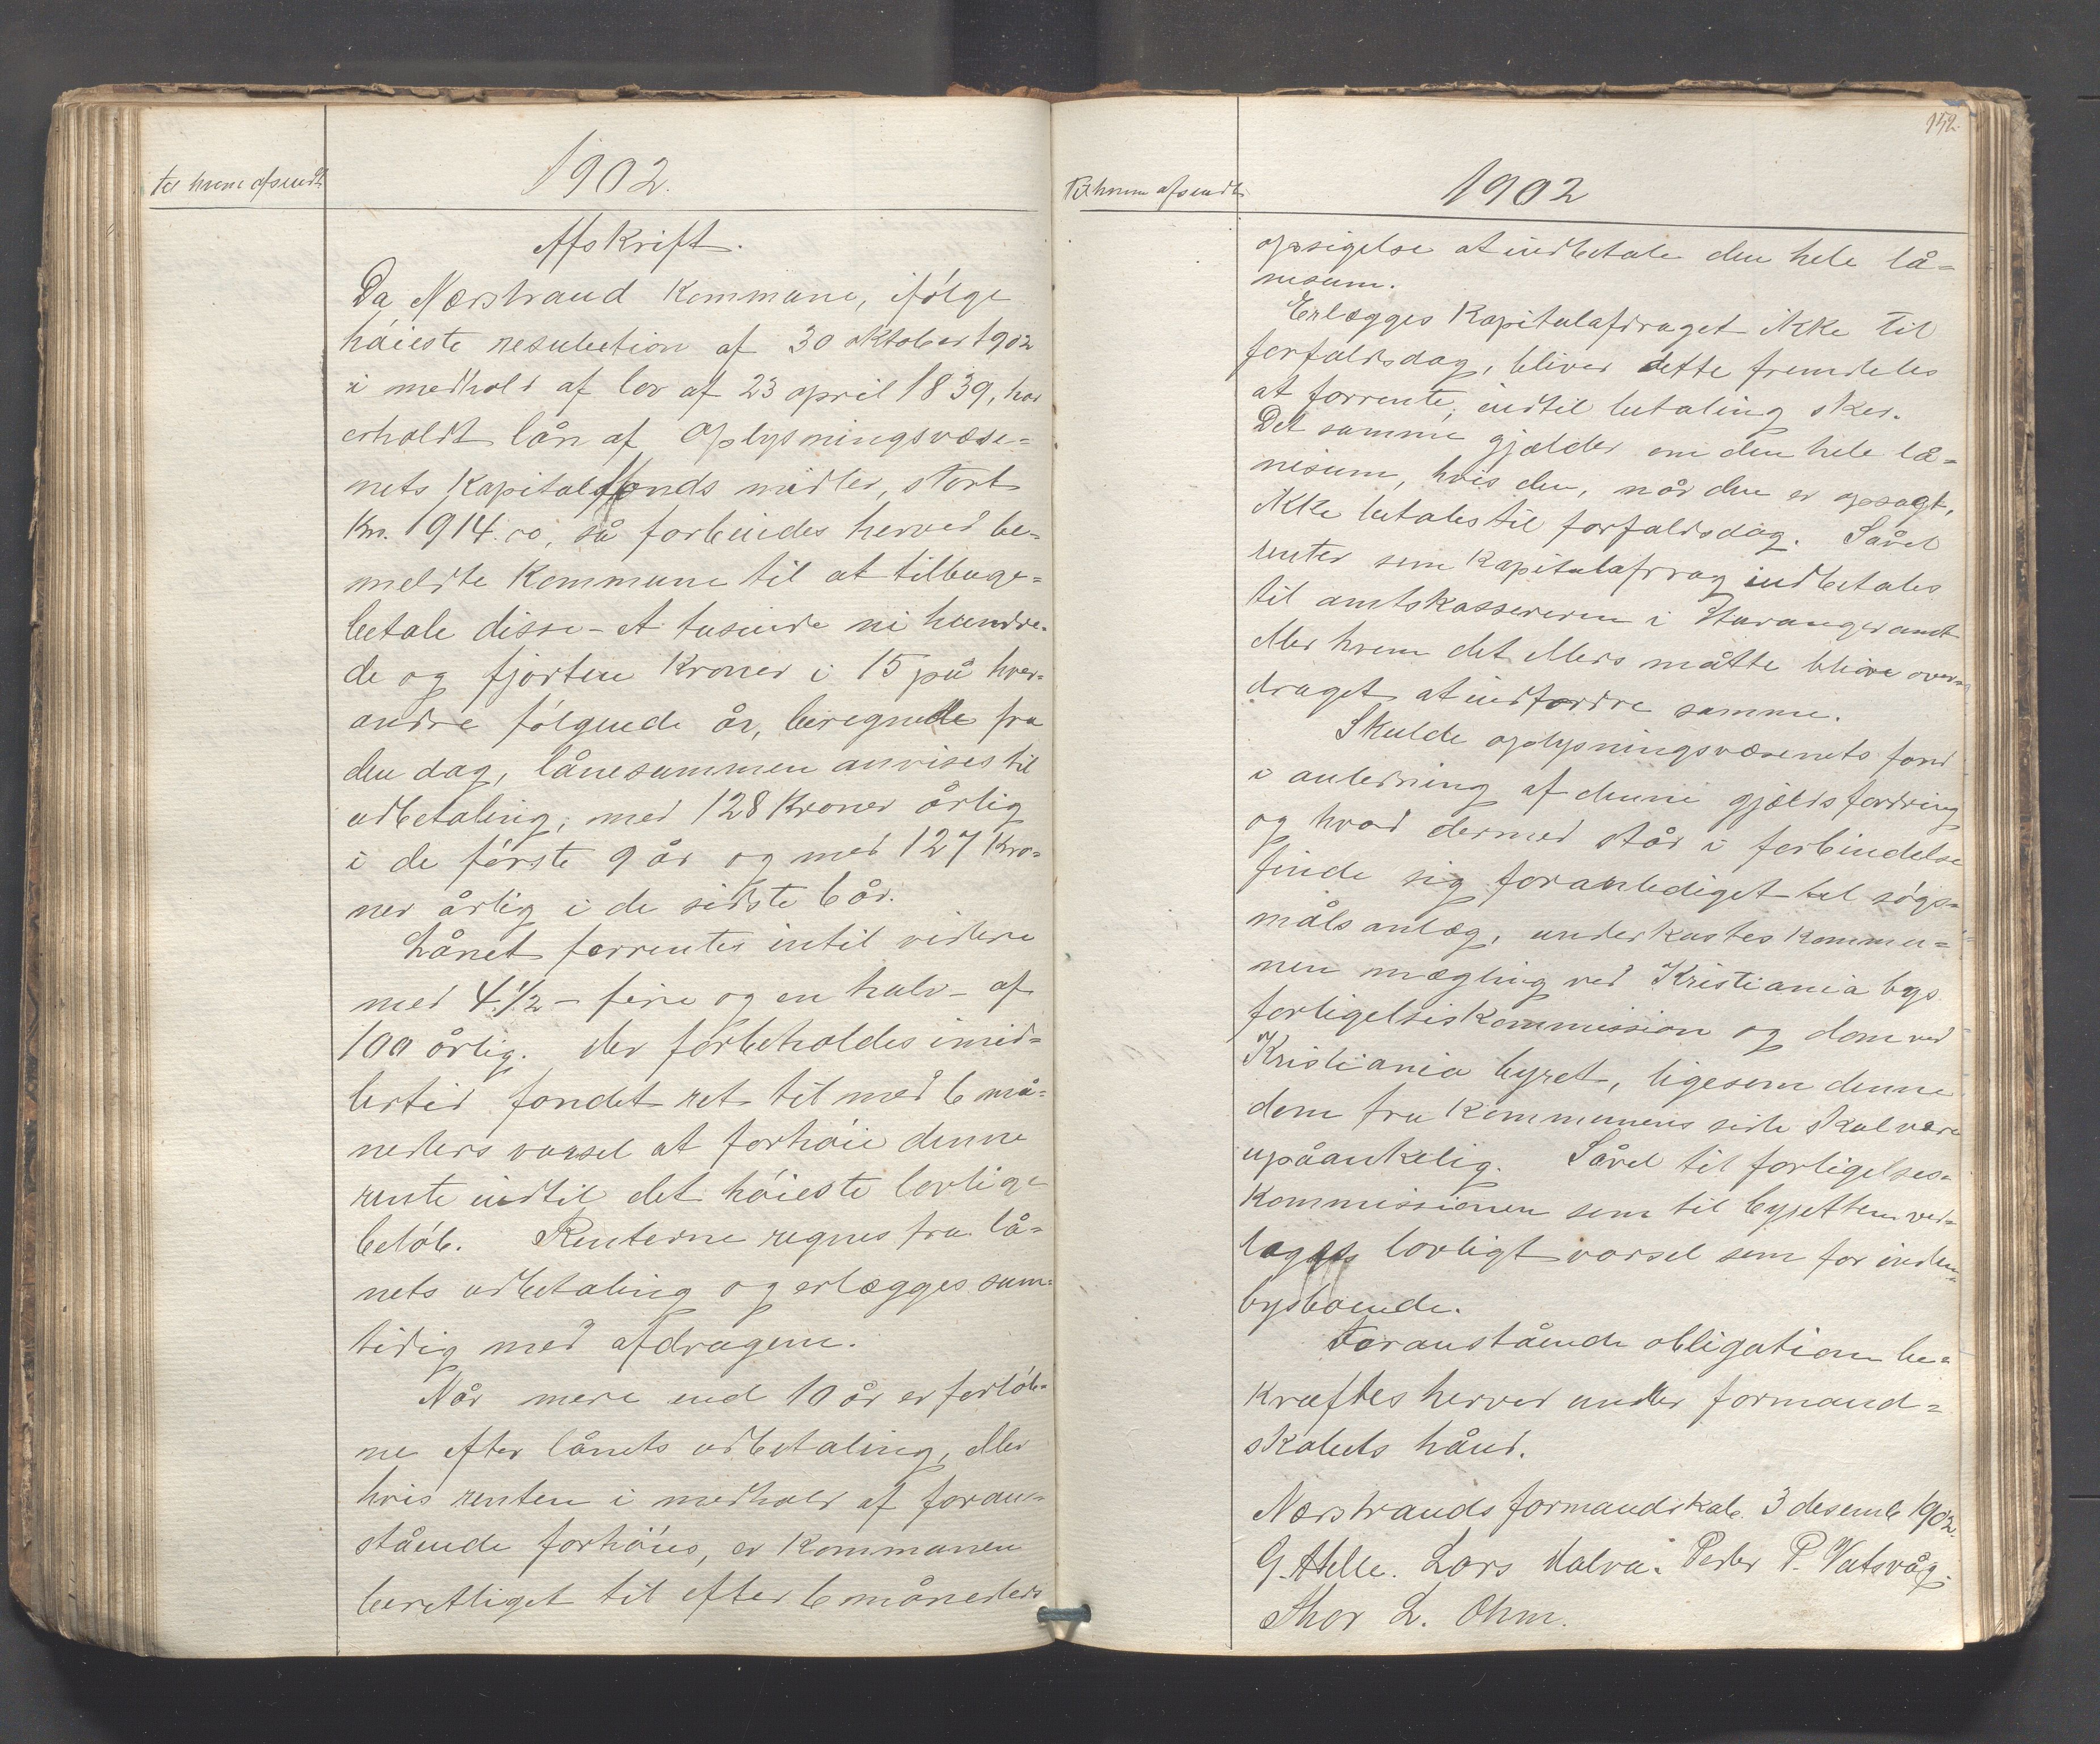 til hvem afsendt
1902.
Afskrift.
Da Nærstrand kommune, ifølge
høieste resulution af 30 oktober 1902
i medhold af lov af 23 april 1839, har
erholdt lån af Oplysningsvæse=
nets kapitalfonds midler, stort
Kr. 1914.00, så forbindes herved be=
meldte kommune til at tilbage=
betale disse - et tusinde ni hundre=
de og fjorten kroner i 15 på hver=
andre følgende år, beregnede fra
den dag, lånesummen anvises til
udbetaling, med 128 kroner årlig
i de første 9 år og med 127 kro=
ner årlig i de sidste 6 år.
Lånet forrentes intil videre
med 4 1/2 - fire og en halv - af
100 årlig. Der forbeholdes imid=
lertid fondet ret til med 6 må=
neders varsel at forhøie denne
rente indtil det høieste lovlige
beløb. Renterne regnes fra lå=
nets udbetaling og erlægges sam=
tidig med afdragene.
Når mere end 10 år er forløb=
ne efter lånets udbetaling, eller
hvis renten i medhold af foran=
stående forhøies, er kommunen
berettiget til efter 6 måneders
152.
Til hvem afsendt
1902
opsigelse at indbetale den hele lå=
nesum.
Erlægges kapitalafdraget ikke til
forfaldsdag, bliver dette fremdeles
at forrente, indtil betaling sker.
Det samme gjælder om den hele lå=
nesum, hvis den, når den er opsagt,
ikke betales til forfaldsdag. Såvel
renter som kapitalafdrag indbetales
til amtskassereren i Stavanger amt
eller hvem det ellers måtte blive over=
draget at indfordre samme.
Skulde oplysningsvæsenets fond
i anledning af denne gjældsfordring
og hvad dermed står i forbindelse
finde sig foranlediget til søgs=
måls anlæg, underkastes kommu=
nen mægling ved Kristiania bys
forligelseskommission og dom ved
Kristiania byret, ligesom denne
dom fra kommunens side skal være
upåankelig. Såvel til forligelses=
kommissionen som til byretten ved=
tages lovligt varsel som for inden=
bysboende.
Foranstående obligation be=
kræftes herved under formand=
skabets hånd.
Nærstrands formandskab 3 desemb 1902.
G. Helle. Lars Dalva. Peder P. Vatsvåg.
Thor L. Ohm.